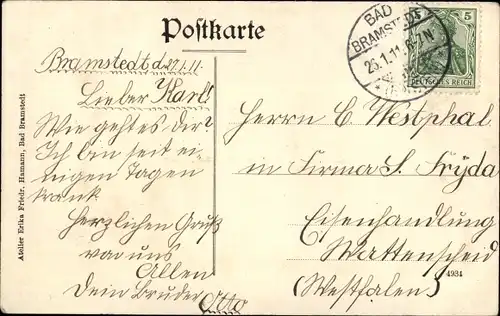 Postkarte
BAD
BRAMSTEDT
26.1.11.6-7N
5
DEUTSCHES REICH
Bramstedt d. 27.1.11.
Lieber Karl!
Wie geht es dir?
Ich bin seit ei-
nigen Tagen
krank.
Herzlichen Gruß
von uns
Allen
Dein Bruder Otto
Herrn C. Westphal
in Firma S. Fryda
Eisenhandlung
Wattenscheid
(Westfalen)
4984
Atelier Erika Friedr. Hamann, Bad Bramstedt